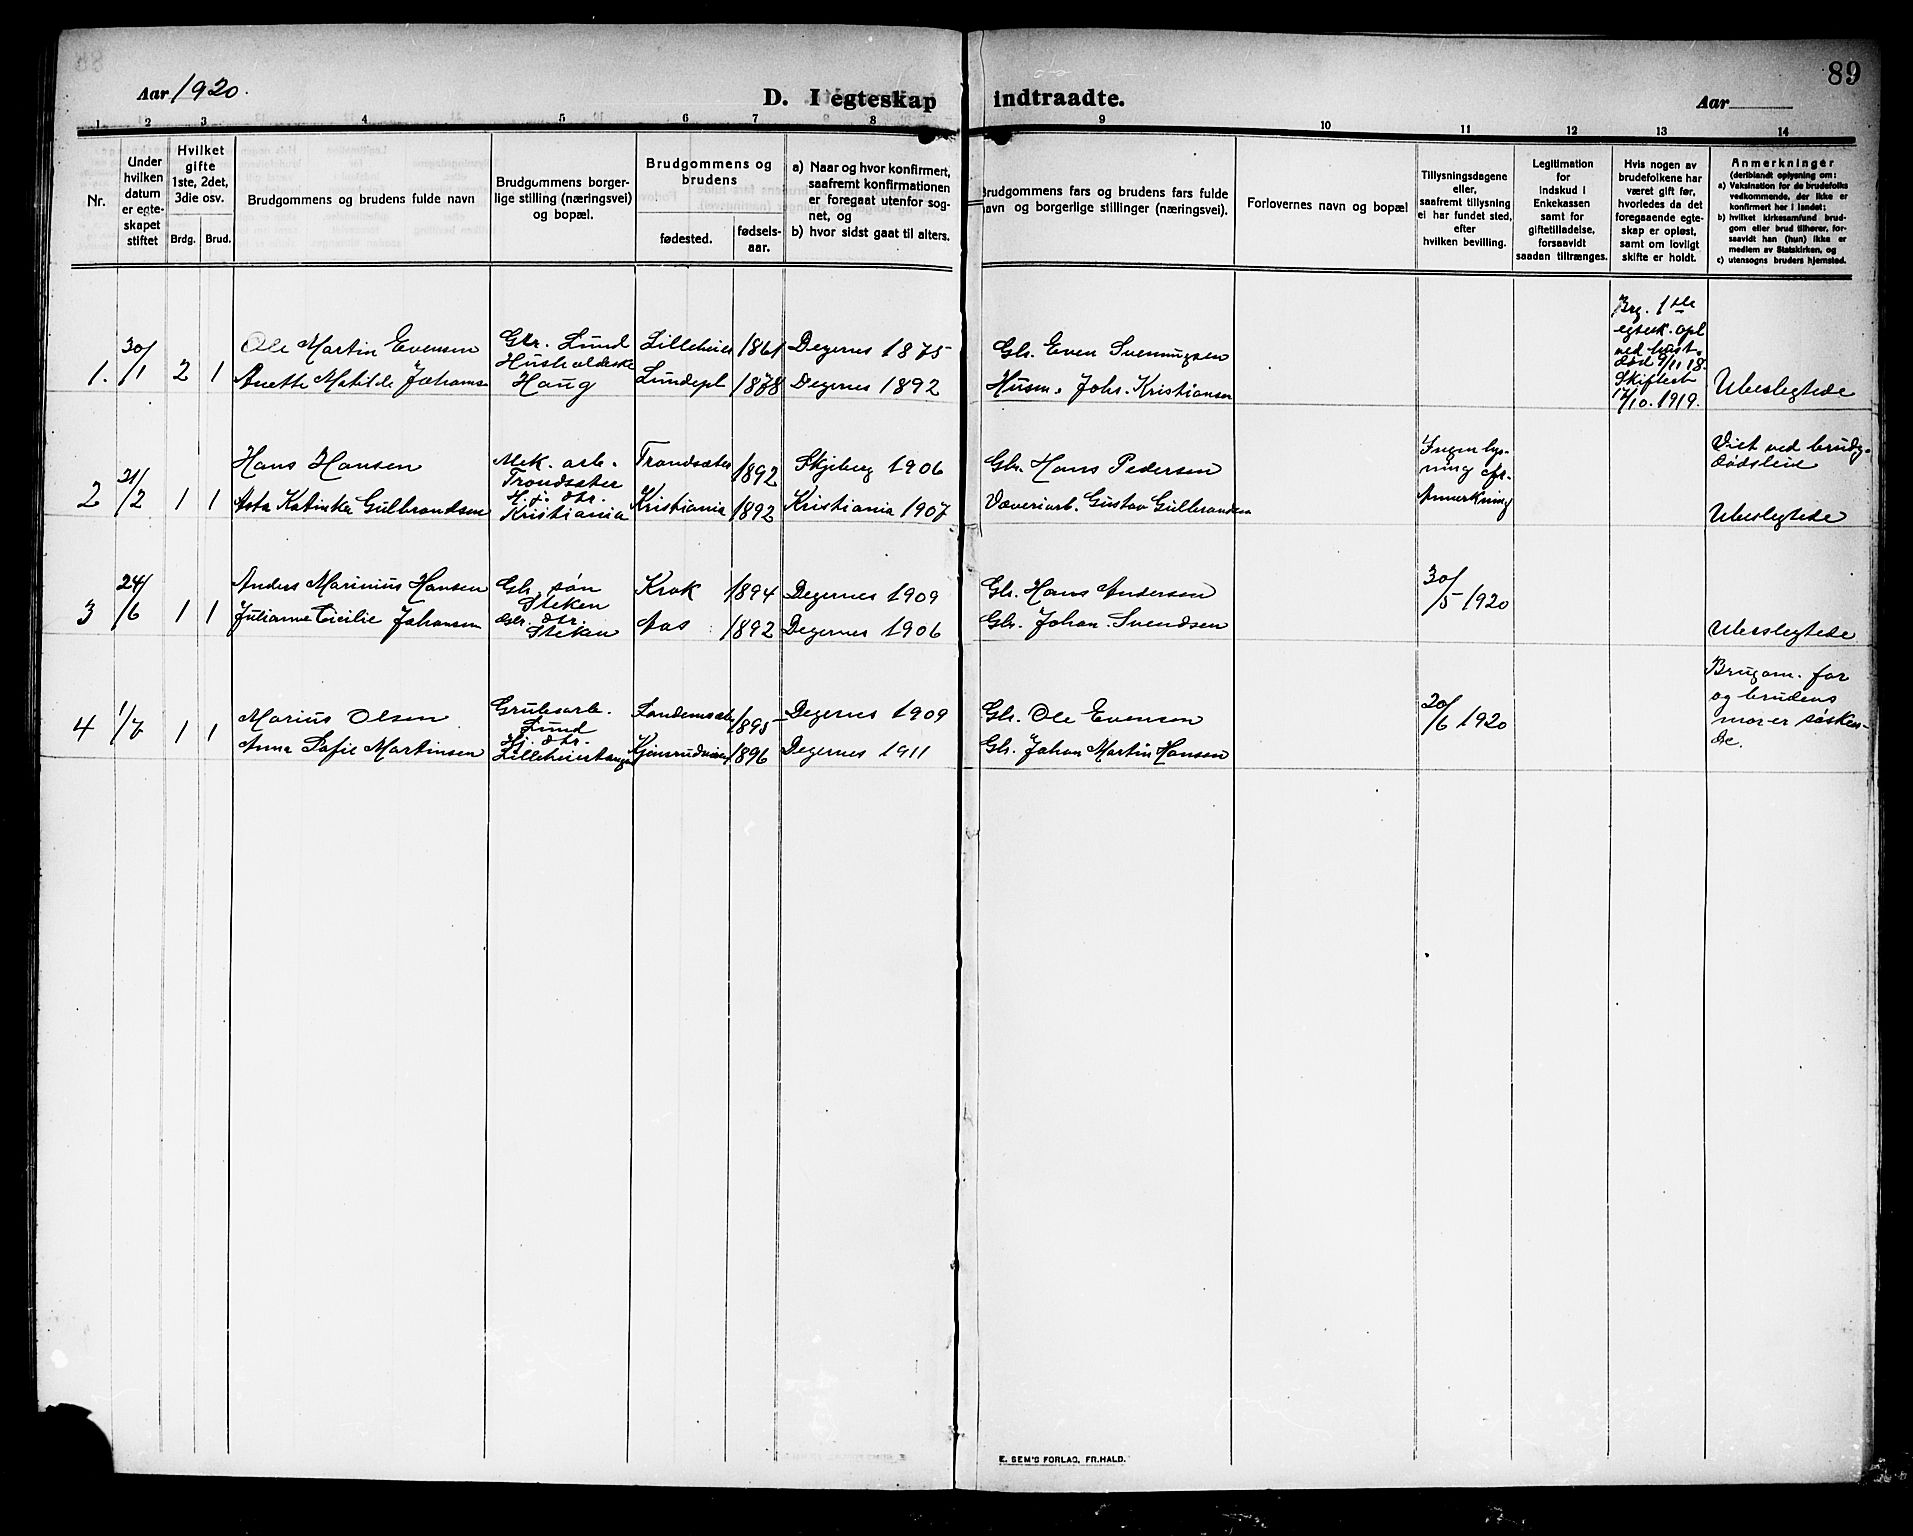 89
Aar 1920.
D. I egteskap indtraadte.
Aar
1 2 3 4 5 6 7 8 9 10 11 12 13 14
Nr.
Under hvilken datum er egteskapet stiftet
Hvilket gifte 1ste, 2det, 3die osv.
Brdg. Brud.
Brudgommens og brudens fulde navn
Brudgommens borger-
lige stilling (næringsvei)
og bopæl.
Brudgommens og
brudens
fødested.
fødsels-
aar.
a) Naar og hvor konfirmert,
saafremt konfirmationen
er foregaat utenfor sog-
net, og
b) hvor sidst gaat til alters.
Brudgommens fars og brudens fars fulde
navn og borgerlige stillinger (næringsvei).
Forlovernes navn og bopæl
Tillysningsdagene
eller,
saafremt tillysning
ei har fundet sted,
efter
hvilken bevilling.
Legitimation
for
indskud i
Enkekassen
samt for
giftetilladelse,
forsaavidt
saadan tiltrænges.
Hvis nogen av
brudefolkene har
været gift før,
hvorledes da det
foregaaende egte-
skap er opløst,
samt om lovligt
skifte er holdt.
Anmerkninger
(deriblandt oplysning om:
a) Vaksination for de brudefolks
vedkommende, der ikke er
konfirmert her i landet;
b) hvilket kirkesamfund brud-
gom eller brud tilhører, for-
saavidt han (hun) ikke er
medlem av Statskirken, og
c) utensogns bruders hjemsted.
1. 30/1 2 1
Ole Martin Evensen
Anette Matilde Johans
Gbr. Lund
Husholderske
Haug
Lilleheier 1861 Degernes 1875
Lundepl 1878 Degernes 1892
Gbr. Even Svenningsen
Husm. Johs. Kristiansen
Brg. 1ste
egtesk. opl
ved hust.
død 9/11 18.
Skifteat
17/10. 1919.
Ubeslegtede
2 21/2 1 1
Hans Hansen
Asta Katinka Gulbrandsen
Mek. arb.
Trondsæter
Hj. dtr.
Kristiania
Trondsæter 1892 Skjeberg 1906
Kristiania 1892 Kristiania 1907
Gbr. Hans Pedersen
Væveriarb. Gustav Gulbrandsen
Ingen lys-
ning cfr.
Anmerkning
Viet ved brudg.
dødsleie
Ubeslegtede
3 24/6 1 1
Anders Marinius Hansen
Julianne Cicilie Johansen
Gbr. søn
Steken
Gbr. dtr.
Steken
Krok 1894 Degernes 1909
Aas 1892 Degernes 1906
Gbr. Hans Andersen
Gbr. Johan Svendsen
30/5 1920
Ubeslegtede
4 1/7 1 1
Marius Olsen
Anna Sofie Martinsen
Grubearb.
Lund
Hj. dtr.
Lilleheiertangen
1895 Degernes 1909
1896 Degernes 1911
Gbr. Ole Evensen
Gbr. Johan Martin Hansen
20/6 1920
Brugom. far
og brudens
mor er søsken-
de.
E. SEM'S FORLAG, FR.HALD.